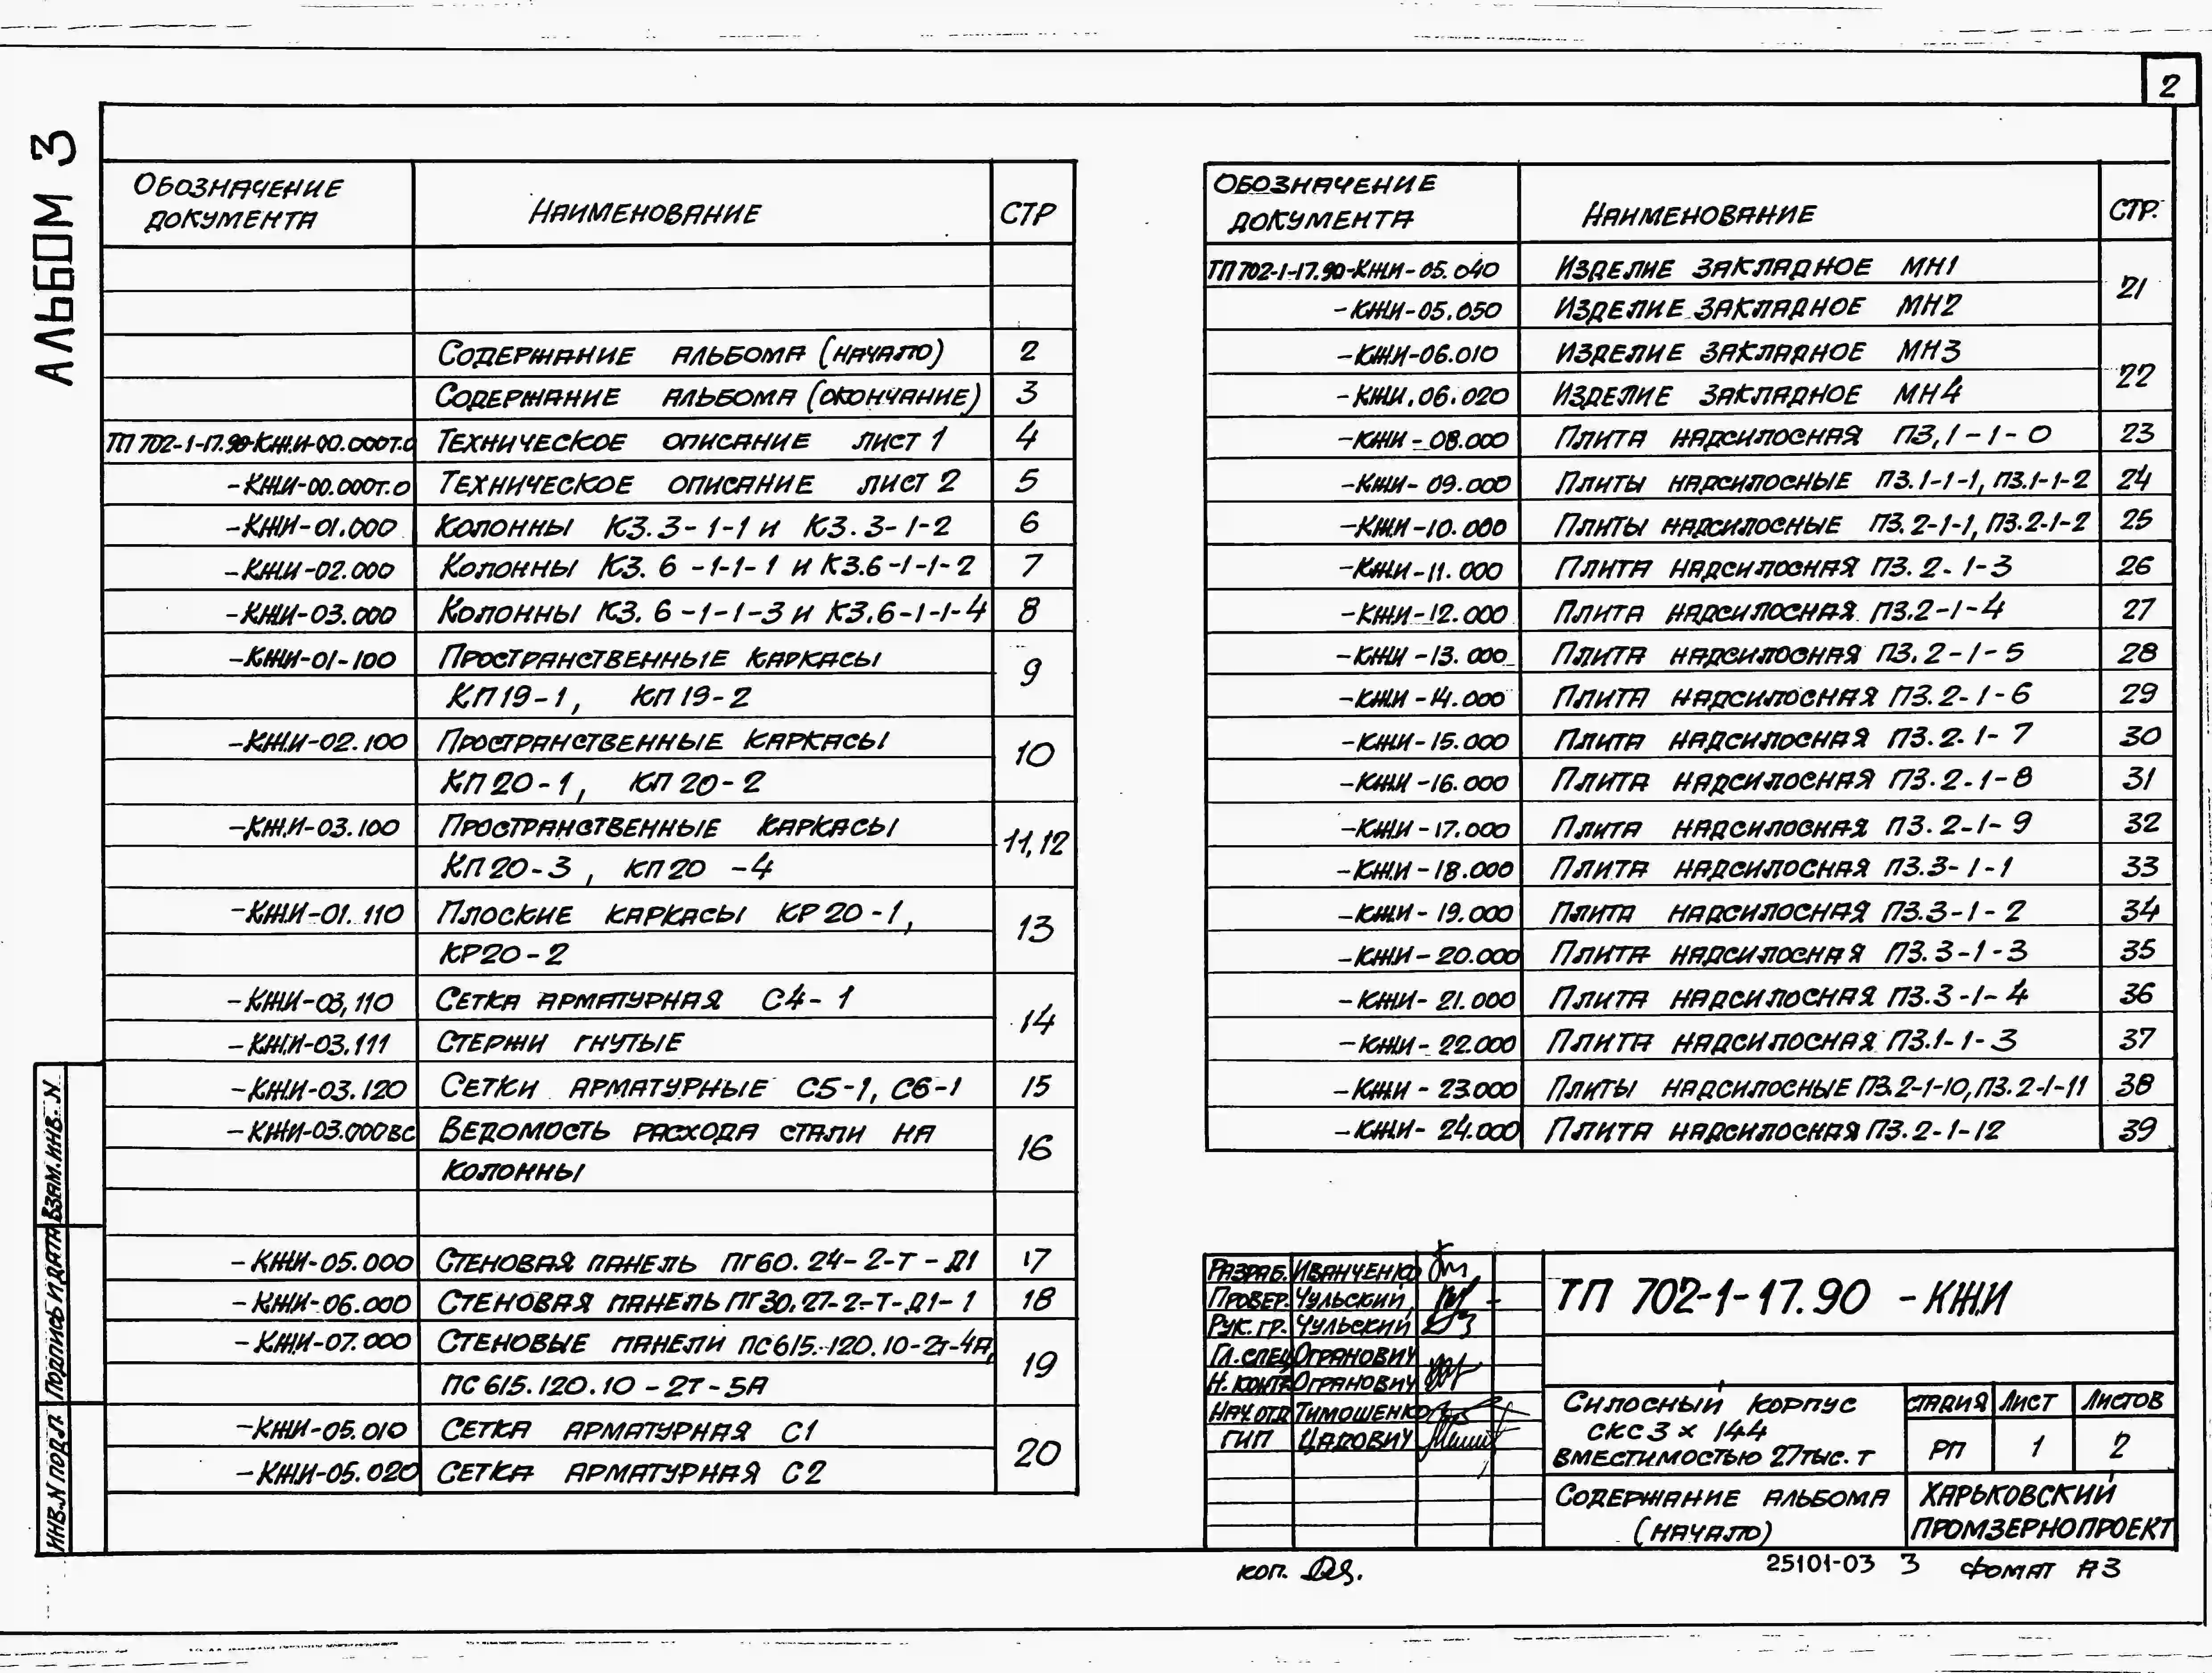 2
АЛЬБОМ 3
ОБОЗНАЧЕНИЕ ДОКУМЕНТА НАИМЕНОВАНИЕ СТР
СОДЕРЖАНИЕ АЛЬБОМА (НАЧАЛО) 2
СОДЕРЖАНИЕ АЛЬБОМА (ОКОНЧАНИЕ) 3
ТП 702-1-17.90-КЖИ-00.000Т.О ТЕХНИЧЕСКОЕ ОПИСАНИЕ ЛИСТ 1 4
-КЖИ-00.000Т.О ТЕХНИЧЕСКОЕ ОПИСАНИЕ ЛИСТ 2 5
-КЖИ-01.000 КОЛОННЫ К3.3-1-1 И К3.3-1-2 6
-КЖИ-02.000 КОЛОННЫ К3.6-1-1-1 И К3.6-1-1-2 7
-КЖИ-03.000 КОЛОННЫ К3.6-1-1-3 И К3.6-1-1-4 8
-КЖИ-01-100 ПРОСТРАНСТВЕННЫЕ КАРКАСЫ 9
КП19-1, КП19-2
-КЖИ-02.100 ПРОСТРАНСТВЕННЫЕ КАРКАСЫ 10
КП20-1, КП20-2
-КЖИ-03.100 ПРОСТРАНСТВЕННЫЕ КАРКАСЫ 11,12
КП20-3, КП20-4
-КЖИ-01.110 ПЛОСКИЕ КАРКАСЫ КР20-1, 13
КР20-2
-КЖИ-03,110 СЕТКА АРМАТУРНАЯ С4-1 14
-КЖИ-03.111 СТЕРЖНИ ГНУТЫЕ
-КЖИ-03.120 СЕТКИ АРМАТУРНЫЕ С5-1, С6-1 15
-КЖИ-03.000ВС ВЕДОМОСТЬ РАСХОДА СТАЛИ НА 16
КОЛОННЫ
-КЖИ-05.000 СТЕНОВАЯ ПАНЕЛЬ ПГ60.24-2-Т-Д1 17
-КЖИ-06.000 СТЕНОВАЯ ПАНЕЛЬ ПГ30.27-2-Т-Д1-1 18
-КЖИ-07.000 СТЕНОВЫЕ ПАНЕЛИ ПС6/5.120.10-2т-4А, 19
ПС6/5.120.10-2Т-5А
-КЖИ-05.010 СЕТКА АРМАТУРНАЯ С1 20
-КЖИ-05.020 СЕТКА АРМАТУРНАЯ С2
ОБОЗНАЧЕНИЕ ДОКУМЕНТА НАИМЕНОВАНИЕ СТР.
ТП702-1-17.90-КЖИ-05.040 ИЗДЕЛИЕ ЗАКЛАДНОЕ МН1 21
-КЖИ-05.050 ИЗДЕЛИЕ ЗАКЛАДНОЕ МН2
-КЖИ-06.010 ИЗДЕЛИЕ ЗАКЛАДНОЕ МН3 22
-КЖИ.06.020 ИЗДЕЛИЕ ЗАКЛАДНОЕ МН4
-КЖИ-08.000 ПЛИТА НАДСИЛОСНАЯ П3,1-1-0 23
-КЖИ-09.000 ПЛИТЫ НАДСИЛОСНЫЕ П3.1-1-1, П3.1-1-2 24
-КЖИ-10.000 ПЛИТЫ НАДСИЛОСНЫЕ П3.2-1-1, П3.2-1-2 25
-КЖИ-11.000 ПЛИТА НАДСИЛОСНАЯ П3.2-1-3 26
-КЖИ-12.000 ПЛИТА НАДСИЛОСНАЯ П3.2-1-4 27
-КЖИ-13.000 ПЛИТА НАДСИЛОСНАЯ П3.2-1-5 28
-КЖИ-14.000 ПЛИТА НАДСИЛОСНАЯ П3.2-1-6 29
-КЖИ-15.000 ПЛИТА НАДСИЛОСНАЯ П3.2-1-7 30
-КЖИ-16.000 ПЛИТА НАДСИЛОСНАЯ П3.2-1-8 31
-КЖИ-17.000 ПЛИТА НАДСИЛОСНАЯ П3.2-1-9 32
-КЖИ-18.000 ПЛИТА НАДСИЛОСНАЯ П3.3-1-1 33
-КЖИ-19.000 ПЛИТА НАДСИЛОСНАЯ П3.3-1-2 34
-КЖИ-20.000 ПЛИТА НАДСИЛОСНАЯ П3.3-1-3 35
-КЖИ-21.000 ПЛИТА НАДСИЛОСНАЯ П3.3-1-4 36
-КЖИ-22.000 ПЛИТА НАДСИЛОСНАЯ П3.1-1-3 37
-КЖИ-23.000 ПЛИТЫ НАДСИЛОСНЫЕ П3.2-1-10, П3.2-1-11 38
-КЖИ-24.000 ПЛИТА НАДСИЛОСНАЯ П3.2-1-12 39
ВЗАМ.ИНВ.N
ПОДПИСЬ И ДАТА
ИНВ.N ПОДЛ.
РАЗРАБ. ИВАНЧЕНКО
ПРОВЕР. ЧУЛЬСКИЙ
РУК. ГР. ЧУЛЬСКИЙ
ГЛ. СПЕЦ ОГРАНОВИЧ
Н. КОНТР ОГРАНОВИЧ
НАЧ.ОТД ТИМОШЕНКО
ГИП ЦАДОВИЧ
ТП 702-1-17.90 -КЖИ
СИЛОСНЫЙ КОРПУС
СКС 3 х 144
ВМЕСТИМОСТЬЮ 27ТЫС. Т
СТАДИЯ ЛИСТ ЛИСТОВ
РП 1 2
СОДЕРЖАНИЕ АЛЬБОМА
(НАЧАЛО)
ХАРЬКОВСКИЙ
ПРОМЗЕРНОПРОЕКТ
КОП.
25101-03 3 ФОМАТ А3